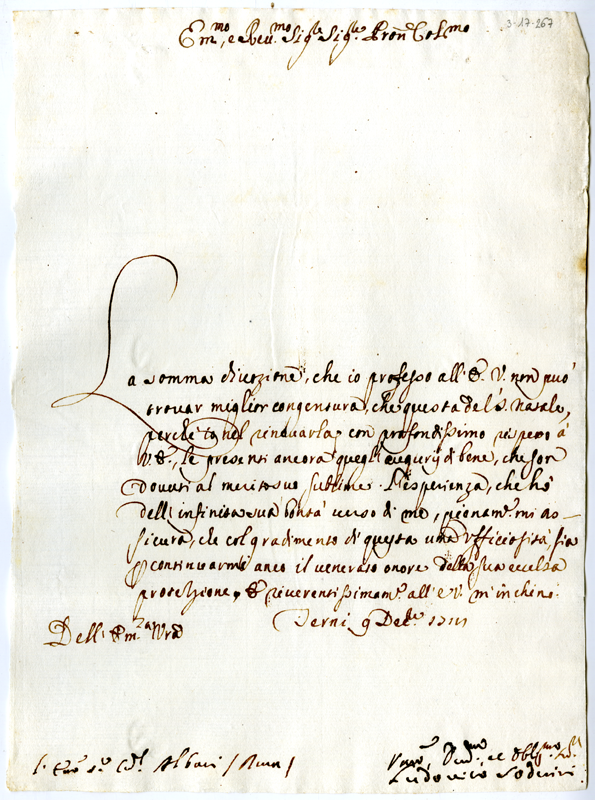 3-17-267
Em.mo, e Rev.mo Sig.re Sig.re Pron Col.mo
La somma divozione, che io professo all'E. V. non può
trovar miglior congentura, che questa del S. Natale,
perche io nel rinovarla, con profondissimo rispetto à
V. E., le presenti ancora quegli augurij di bene, che son
dovuti al merito suo sublime. L'esperienza, che hò
dell'infinita sua bontà verso di me, pienam.te mi as-
sicura, che col gradimento di questa umil ufficiosità sia
p continuarmi anco il venerato onore della sua eccelsa
protezzione, E riverentissimam.te all'E. V. m'inchino.
Terni 9 Dec.re 1711
Dell'Em.za Vra
S. Em.o S.r Cd.l Albani / Roma /
Um.o, Div.mo, et Obblig.mo
Ludovico